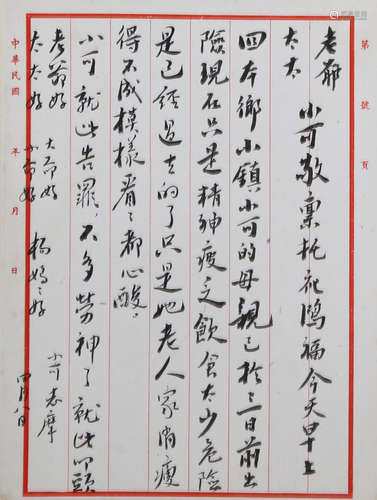 第 號 頁
老爺
太太
小可敬稟托鴻福今天早上
回本鄉小鎮小可的母親已於三日前出
險現在只是精神疲乏飲食太少危險
是已經過去的了只是她老人家消瘦
得不成模樣看々都心酸，
小可就此告罪，不多勞神了就此叩頭
老爺好
太太好
大爺好
小爺好
楊媽々好
小可志摩
四月八日
中華民國 年 月 日